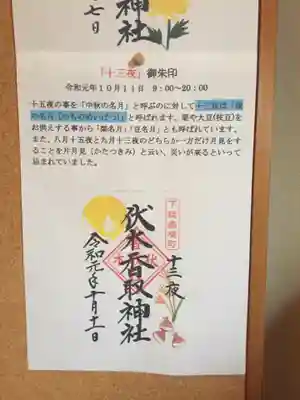 神社
七日
「十三夜」御朱印
令和元年１０月１１日　９：００～２０：００
十五夜の事を「中秋の名月」と呼ぶのに対して十三夜は「後
の名月（のちのめいげつ）」と呼ばれます。栗や大豆(枝豆)を
お供えする事から「栗名月」「豆名月」とも呼ばれています。
また、八月十五夜と九月十三夜のどちらか一方だけ月見をす
ることを片月見（かたつきみ）と云い、災いが来るといって
忌まれていました。
下総
十三夜
伏木香取神社
令和元年十月十一日